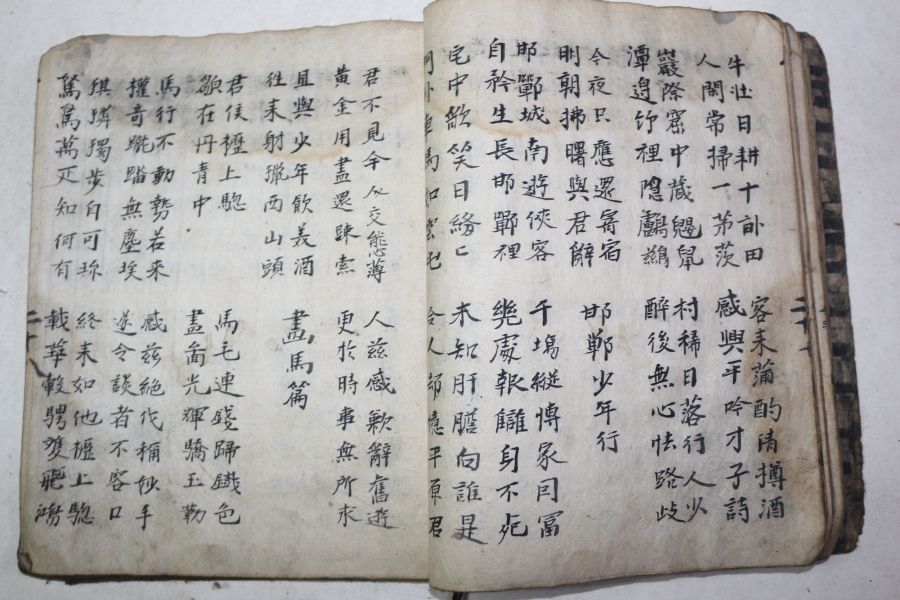 牛壯日耕十畝田
人閑常掃一茅茨
客來滿酌清樽酒
感興平吟才子詩
巖際窟中藏鼴鼠
潭邊竹裡隱鸕鶿
村稀日落行人少
醉後無心怯路歧
今夜只應還寄宿
明朝拂曙與君辭
邯鄲少年行
邯鄲城南遊俠客
自矜生長邯鄲裡
千場縱愽家仍冨
幾處報讎身不死
宅中歌笑日紛〻
門外車馬如雲屯
未知肝膽向誰是
令人却憶平原君
君不見今人交態薄
黃金用盡還踈索
人茲感歎辭舊遊
更於時事無所求
且與少年飲美酒
往來射獵西山頭
畫馬篇
君侯櫪上驄
貌在丹青中
馬毛連錢蹄鐵色
畫啚光輝驕玉勒
馬行不動勢若來
權奇蹴踏無塵埃
感茲絕代稱妙手
遂令談者不容口
騏驎獨步自可珎
駑駘萬疋知何有
終未如他櫪上驄
載華轂騁雙飛鴻